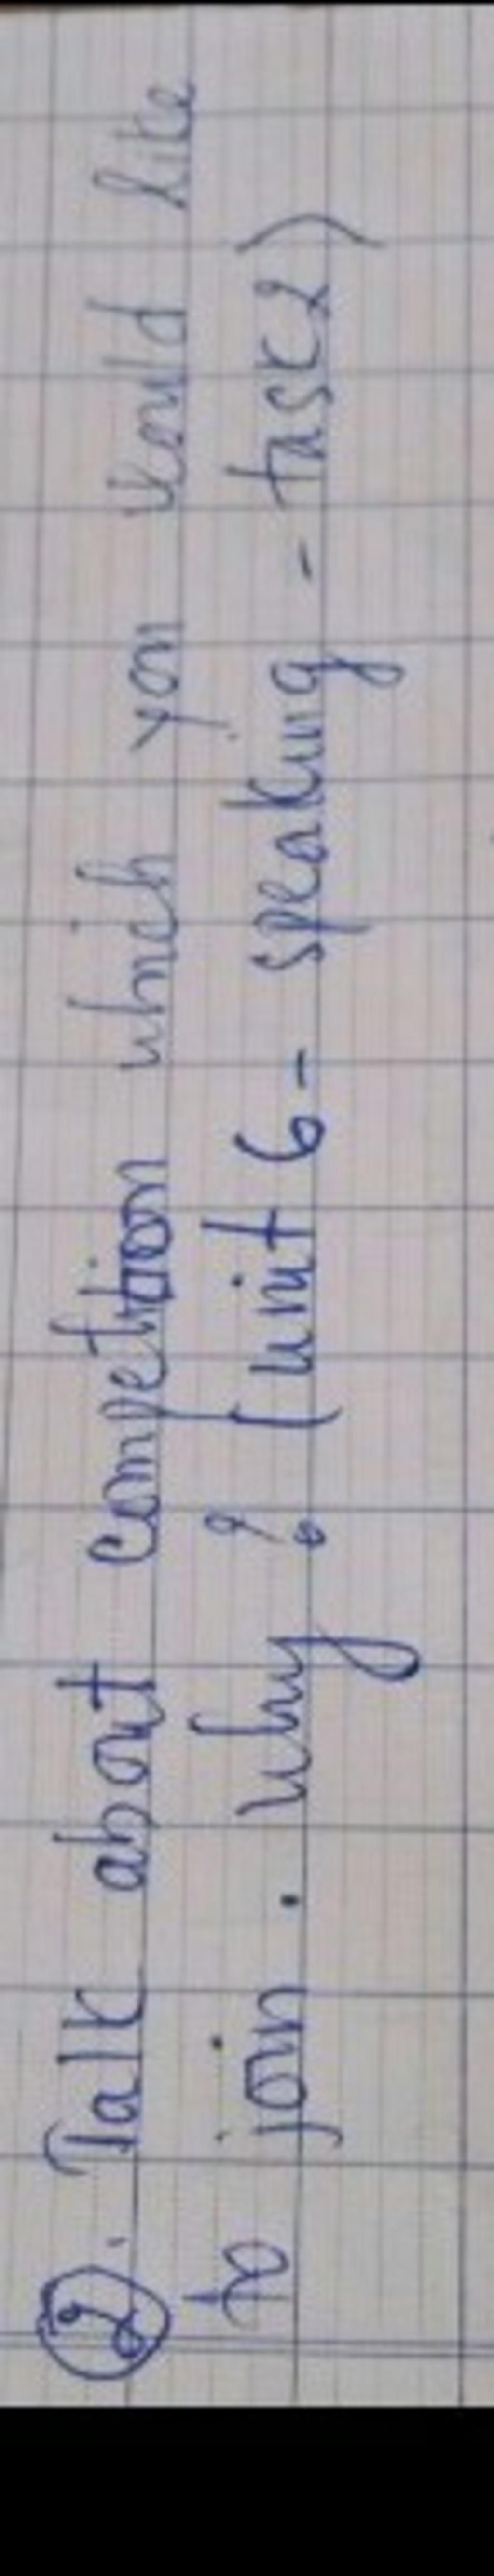 ②. Talk about competition which you would like
to join. Why? (unit 6 - speaking - task 2)